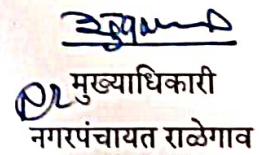 मुख्याधिकारी
नगरपंचायत राळेगाव